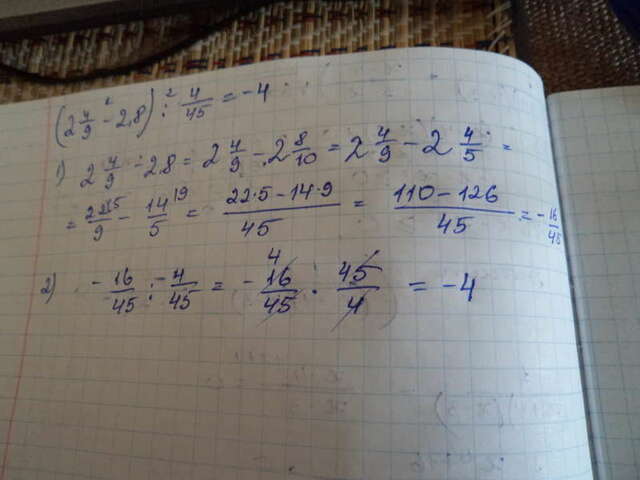 (2 4/9 - 2,8) : 4/45 = -4
1) 2 4/9 - 2,8 = 2 4/9 - 2 8/10 = 2 4/9 - 2 4/5 =
= 22/9 - 14/5 = (22·5 - 14·9)/45 = (110 - 126)/45 = -16/45
2) -16/45 : 4/45 = -16/45 : 45/4 = -4